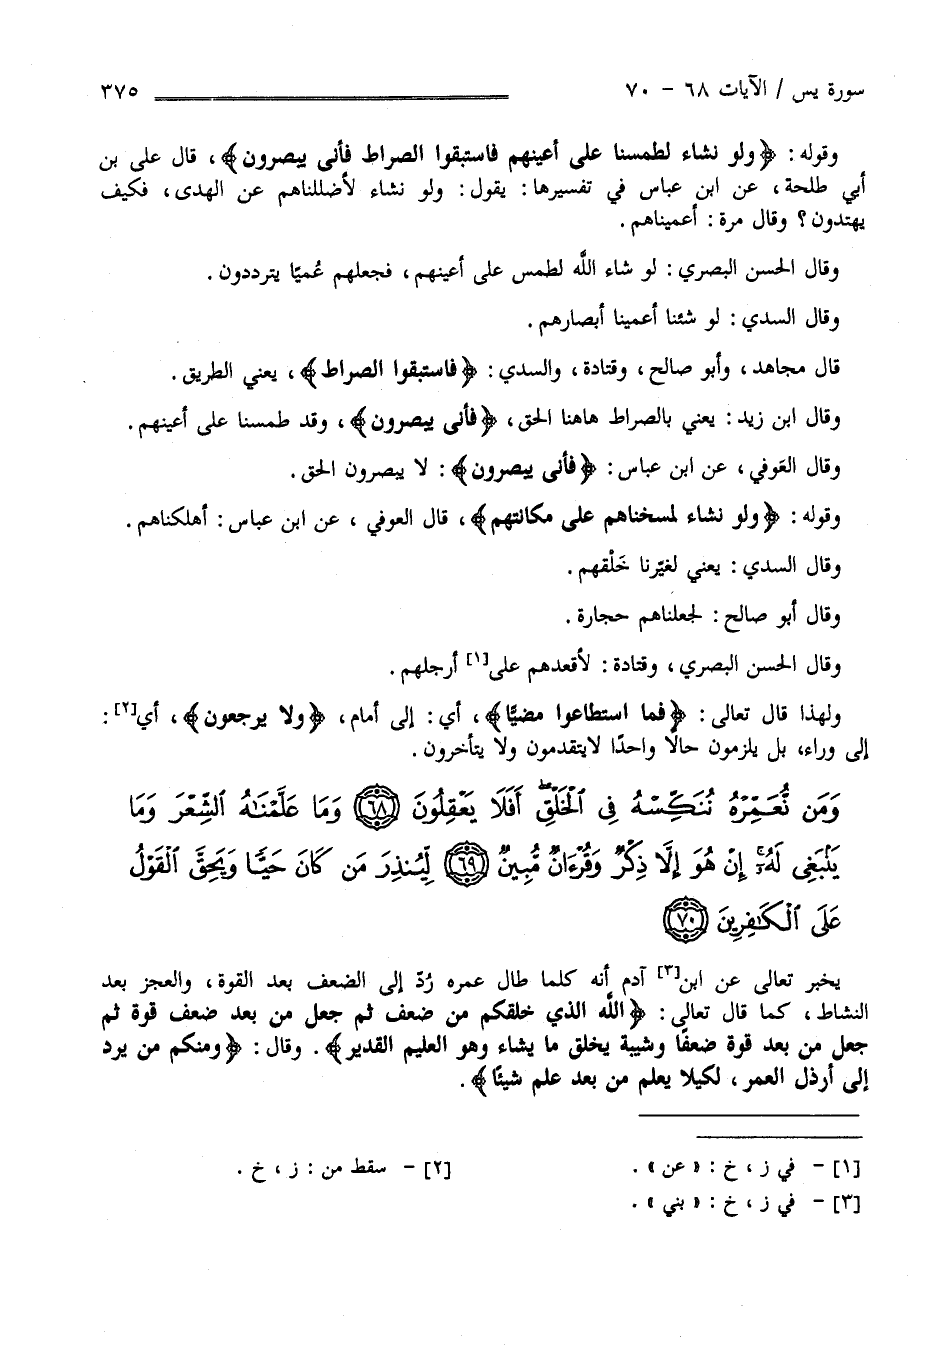 سورة يس / الآيات ٦٨ - ٧٠ ٣٧٥
وقوله : ﴿ولو نشاء لطمسنا على أعينهم فاستبقوا الصراط فأنى يبصرون﴾ ، قال على بن
أبي طلحة ، عن ابن عباس في تفسيرها : يقول : ولو نشاء لأضللناهم عن الهدى ، فكيف
يهتدون ؟ وقال مرة : أعميناهم .
وقال الحسن البصري : لو شاء اللَّه لطمس على أعينهم ، فجعلهم عُميًا يترددون .
وقال السدي : لو شئنا أعمينا أبصارهم .
قال مجاهد ، وأبو صالح ، وقتادة ، والسدي : ﴿فاستبقوا الصراط﴾ ، يعني الطريق .
وقال ابن زيد : يعني بالصراط هاهنا الحق ، ﴿فأنى يبصرون﴾ ، وقد طمسنا على أعينهم .
وقال العَوفي ، عن ابن عباس : ﴿فأنى يبصرون﴾ : لا يبصرون الحق .
وقوله : ﴿ولو نشاء لمسخناهم على مكانتهم﴾ ، قال العوفي ، عن ابن عباس : أهلكناهم .
وقال السدي : يعني لغيّرنا خَلْقهم .
وقال أبو صالح : لجعلناهم حجارة .
وقال الحسن البصري ، وقتادة : لأقعدهم على[١] أرجلهم .
ولهذا قال تعالى : ﴿فما استطاعوا مضيًّا﴾ ، أي : إلى أمام ، ﴿ولا يرجعون﴾ ، أي[٢] :
إلى وراء، بل يلزمون حالًا واحدًا لايتقدمون ولا يتأخرون .
وَمَن نُّعَمِّرْهُ نُنَكِّسْهُ فِى ٱلْخَلْقِۖ أَفَلَا يَعْقِلُونَ ﴿٦٨﴾ وَمَا عَلَّمْنَٰهُ ٱلشِّعْرَ وَمَا
يَنۢبَغِى لَهُۥٓۚ إِنْ هُوَ إِلَّا ذِكْرٌ وَقُرْءَانٌ مُّبِينٌ ﴿٦٩﴾ لِّيُنذِرَ مَن كَانَ حَيًّا وَيَحِقَّ ٱلْقَوْلُ
عَلَى ٱلْكَٰفِرِينَ ﴿٧٠﴾
يخبر تعالى عن ابن[٣] آدم أنه كلما طال عمره رُدّ إلى الضعف بعد القوة ، والعجز بعد
النشاط ، كما قال تعالى : ﴿اللَّه الذي خلقكم من ضعف ثم جعل من بعد ضعف قوة ثم
جعل من بعد قوة ضعفًا وشيبة يخلق ما يشاء وهو العليم القدير﴾ . وقال : ﴿ومنكم من يرد
إلى أرذل العمر ، لكيلا يعلم من بعد علم شيئًا﴾ .
[١] - في ز ، خ : « عن » . [٢] - سقط من : ز ، خ .
[٣] - في ز ، خ : « بني » .